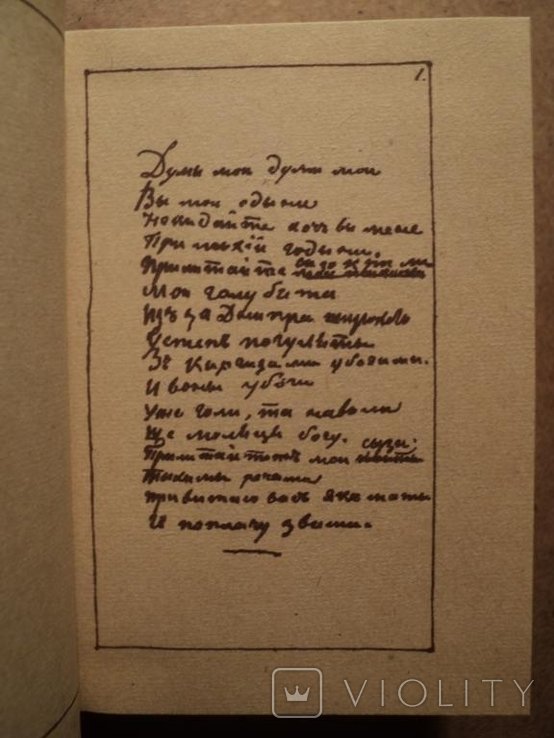 1.
Думы мои думы мои
Вы мои едыни
Некидайте хочь вы мене
При лыхій годыни.
Прылитайте сызокрыли
Мои голубята
Изъ за Днипра широкого
У степъ погуляты
Зъ Киргизами убогыми.
И воны убоги
Уже голи, та наволи
Ще молятця богу. сызи:
Прылитайтежъ мои
Тыхыми речамы
Привитаю васъ якъ маты
И поплачу звами.
VIOLITY